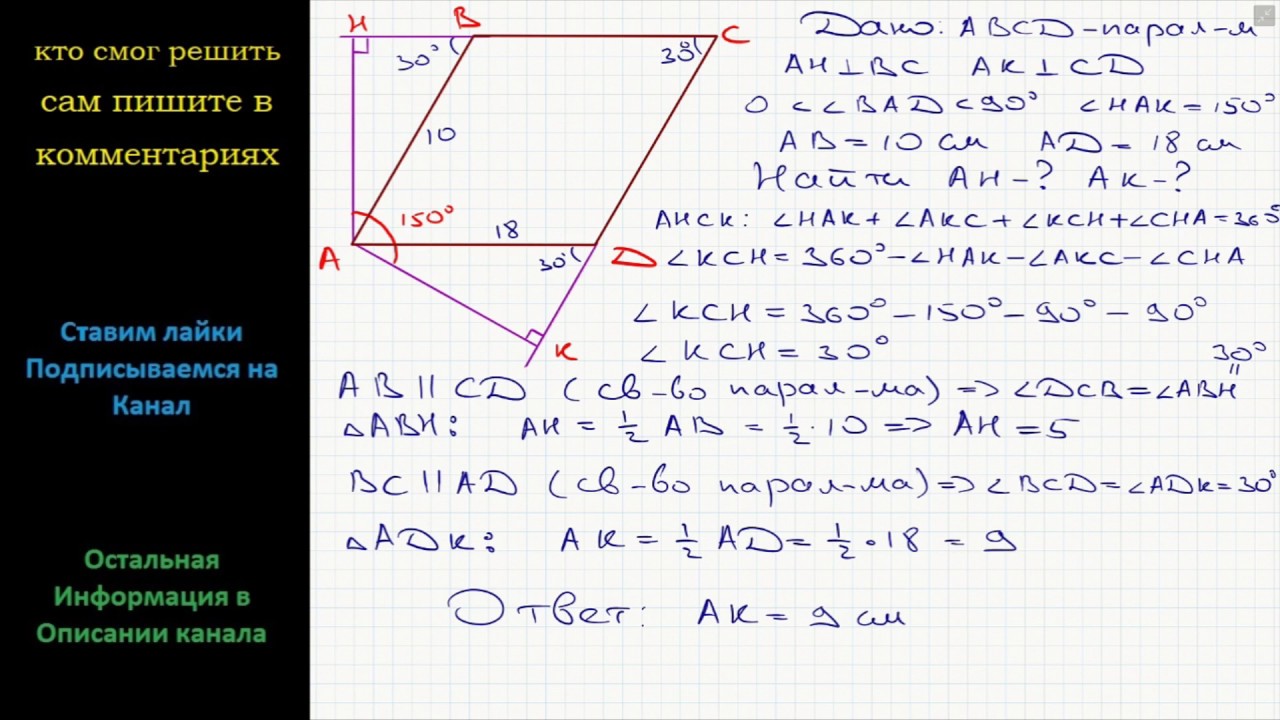 кто смог решить
сам пишите в
комментариях
Ставим лайки
Подписываемся на
Канал
Остальная
Информация в
Описании канала
H
B
C
30°
30°
10
150°
18
A
30°
D
K
Дано: ABCD-парал-м
AH⊥BC AK⊥CD
0 < ∠BAD < 90° ∠HAK = 150°
AB = 10 см AD = 18 см
Найти AH-? AK-?
AHCK: ∠HAK + ∠AKC + ∠KCH + ∠CHA = 360°
∠KCH = 360° - ∠HAK - ∠AKC - ∠CHA
∠KCH = 360° - 150° - 90° - 90°
∠KCH = 30°
30°
=
AB || CD (св-во парал-ма) => ∠DCB = ∠ABH
△ABH: AH = 1/2 AB = 1/2 · 10 => AH = 5
BC || AD (св-во парал-ма) => ∠BCD = ∠ADK = 30°
△ADK: AK = 1/2 AD = 1/2 · 18 = 9
Ответ: AK = 9 см